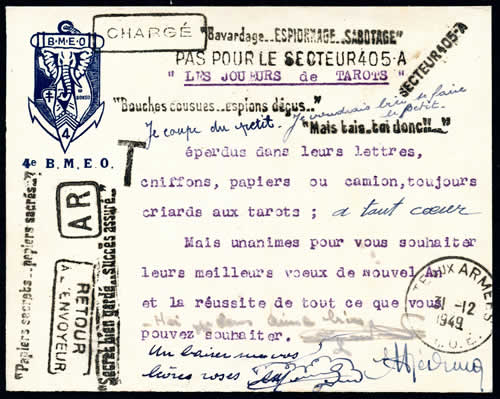 CHARGÉ
B·M·E·O
4
4e B.M.E.O.
"Bavardage..ESPIONNAGE..SABOTAGE"
PAS POUR LE SECTEUR405-A
SECTEUR405-A
" LES JOUEURS de TAROTS "
"Bouches cousues..espions déçus.."
Je coupe du petit. Je voudrais bien le faire
le petit.
"Mais tais..toi donc!!.."
T
éperdus dans leurs lettres,
chiffons, papiers ou camion,toujours
criards aux tarots ; a tout cœur
Mais unanimes pour vous souhaiter
leurs meilleurs voeux de Nouvel An
et la réussite de tout ce que vous
pouvez souhaiter.
"Papiers sacrés..papiers sacrés.."
AR
RETOUR
A L'ENVOYEUR
"Secret bien gardé..succès assuré.."
AUX ARMÉES
31 -12
1949
Un baiser
lèvres roses